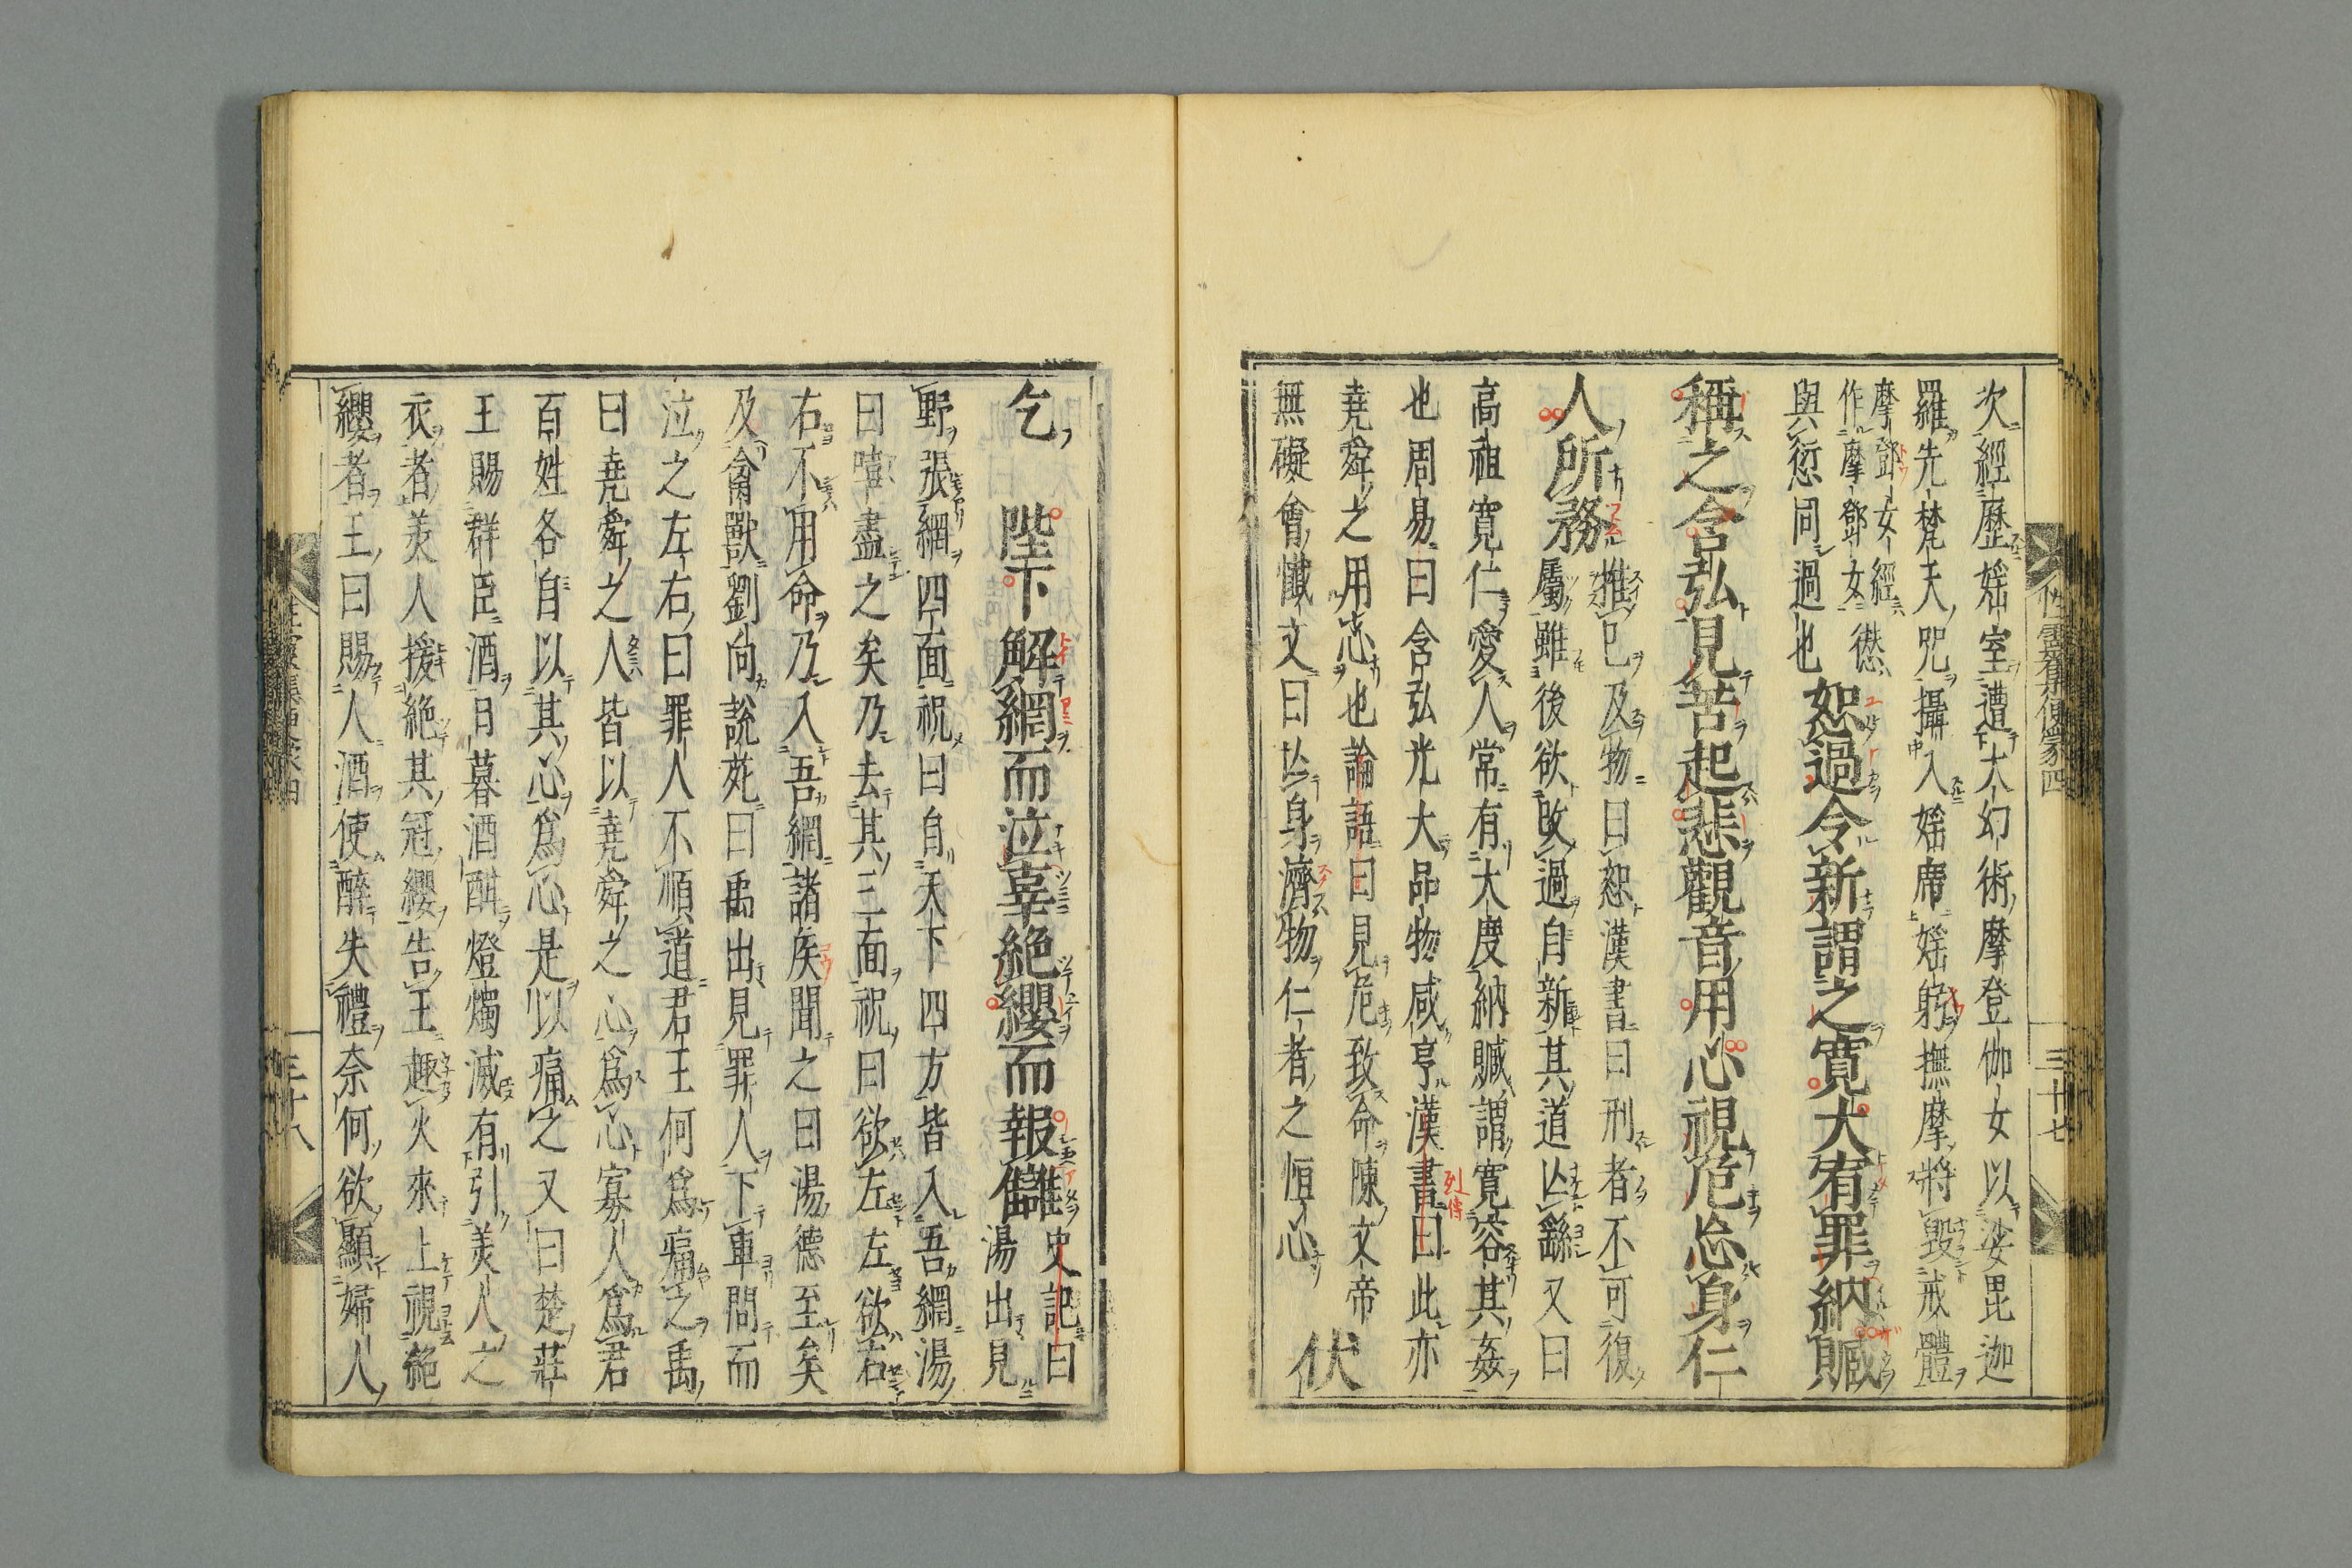 次經歷婬室遭大幻術摩登伽女以娑毘迦
羅先梵天咒攝入婬席婬躬撫摩將毀戒體
摩鄧女經
作摩鄧女
𠎝
與愆同過也
恕過令新謂之寛大宥罪納贓
稱之含弘見苦起悲觀音用心視危忘身仁
人所務
推己及物曰恕漢書曰刑者不可復
屬雖後欲改過自新其道亾繇又曰
高祖寛仁愛人常有大度納贓謂寛容其姦
也周易曰含弘光大品物咸亨漢書曰此亦
列傳
堯舜之用志也論語曰見危致命陳文帝
無礙會懺文曰亾身濟物仁者之恒心
伏
性霊集便蒙四
三十七
乞
陛下解網而泣辜絶纓而報讎
史記曰
湯出見
野張網四面祝曰自天下四方皆入吾網湯
曰嘻盡之矣乃去其三面祝曰欲左左欲右
右不用命乃入吾網諸矦聞之曰湯德至矣
及禽獸劉向說苑曰禹出見罪人下車問而
泣之左右曰罪人不順道君王何爲痛之禹
曰堯舜之人皆以堯舜之心爲心寡人爲君
百姓各自以其心爲心是以痛之又曰楚莊
王賜群臣酒日暮酒酣燈燭滅有引美人之
衣者美人援絶其冠纓告王趣火來上視絶
纓者王曰賜人酒使醉失禮奈何欲顯婦人
三十八